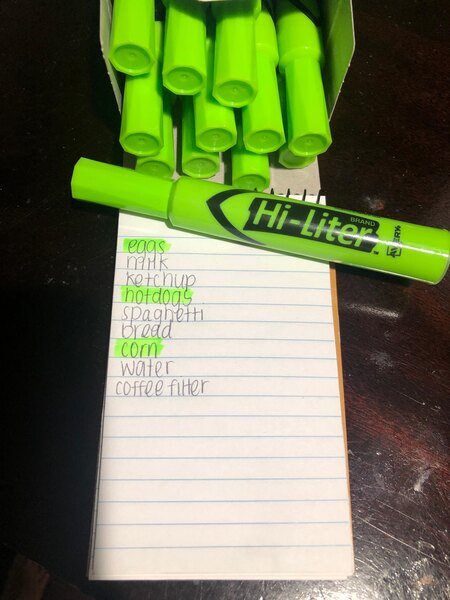 Hi-Liter
BRAND
AVERY
eggs
milk
ketchup
hotdogs
spaghetti
bread
corn
water
coffee filter